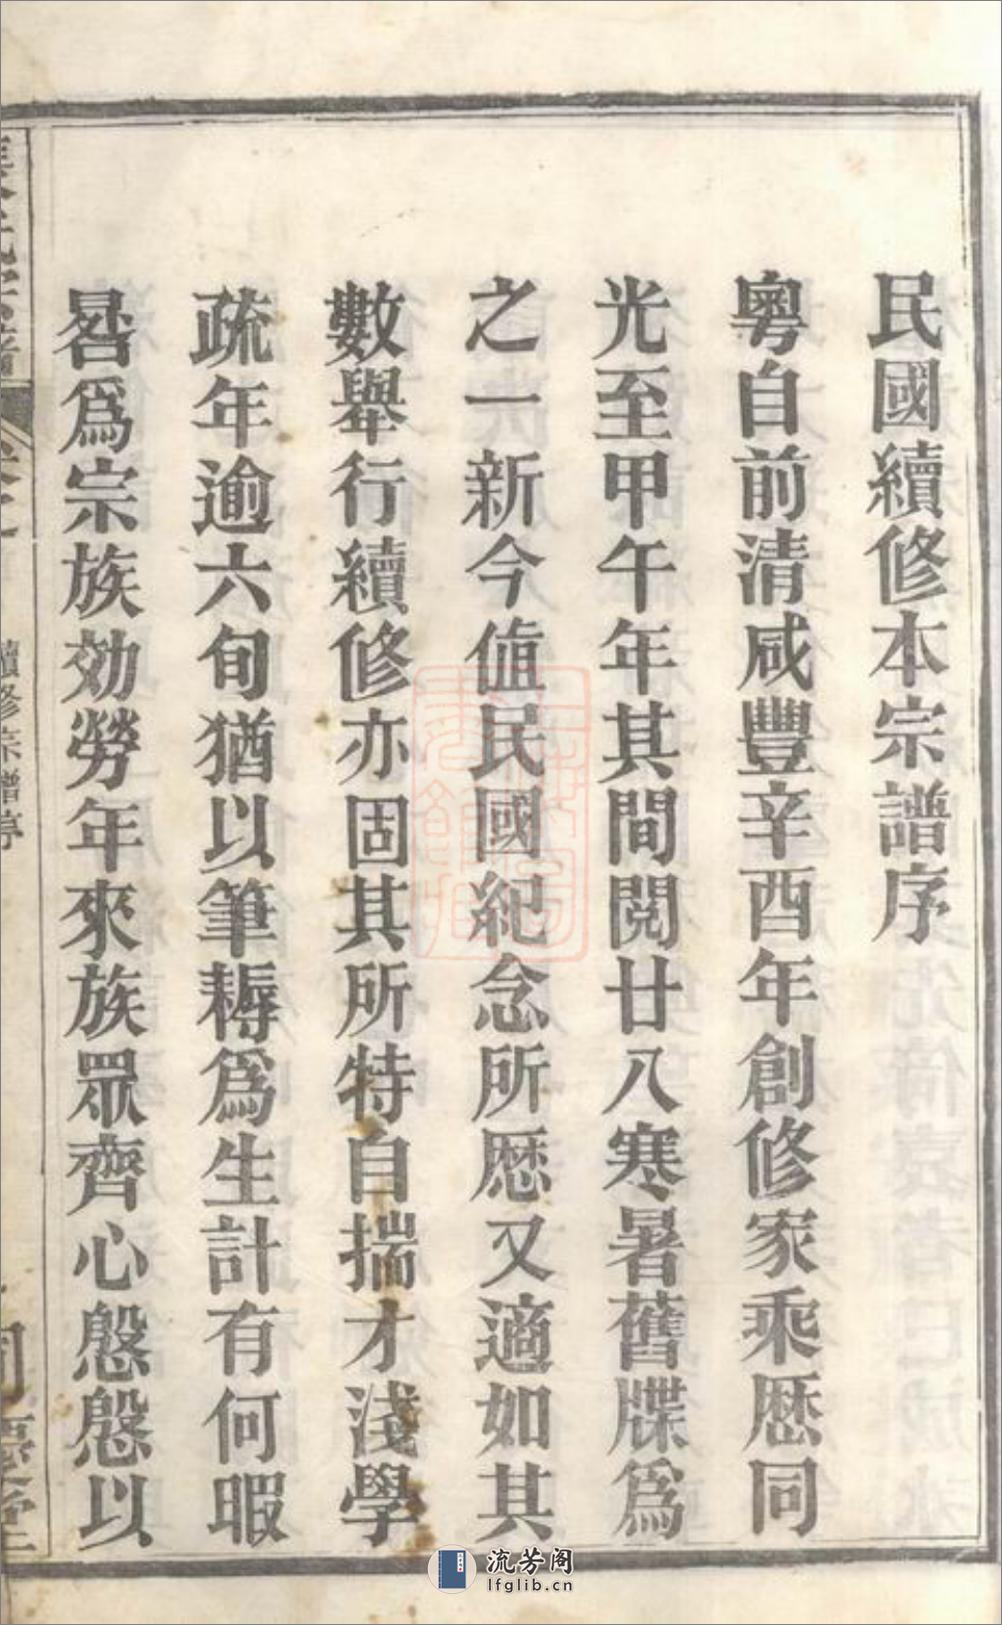 民國續修本宗譜序
粵自前清咸豐辛酉年創修家乘歷同
光至甲午年其間閱廿八寒暑舊牒爲
之一新今値民國紀念所歷又適如其
數舉行續修亦固其所特自揣才淺學
疏年逾六旬猶以筆耨爲生計有何暇
晷爲宗族効勞年來族眾齊心慇慇以
續修宗譜序
流芳阁
lfglib.cn